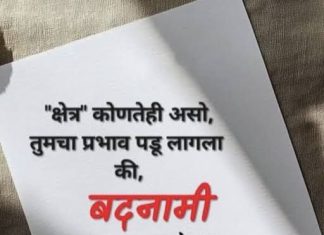 "क्षेत्र" कोणतेही असो,
तुमचा प्रभाव पडू लागला
की,
बदनामी